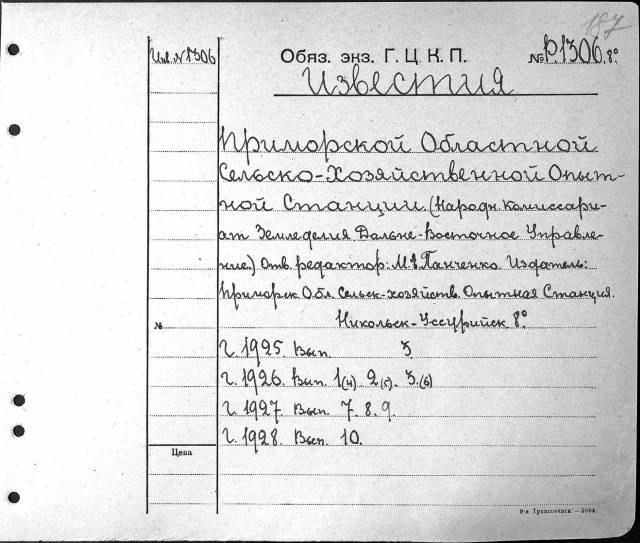 187
Инв. N 1306
Обяз. экз. Г. Ц. К. П.
№ Р.1306. 8º
Известия
Приморской Областной
Сельско-Хозяйственной Опыт-
ной Станции. (Народн. Комиссари-
ат Земледелия. Дальне-Восточное Управле-
ние.) Отв. редактор: М. Панченко. Издатель:
Приморск. Обл. Сельск-хозяйств. Опытная Станция.
Никольск-Уссурийск 8º
№
Г. 1925. Вып. 3.
Г. 1926. Вып. 1(4). 2(5). 3.(6)
Г. 1927. Вып. 7. 8. 9.
Г. 1928. Вып. 10.
Цена
8-я Транспечать.—3884